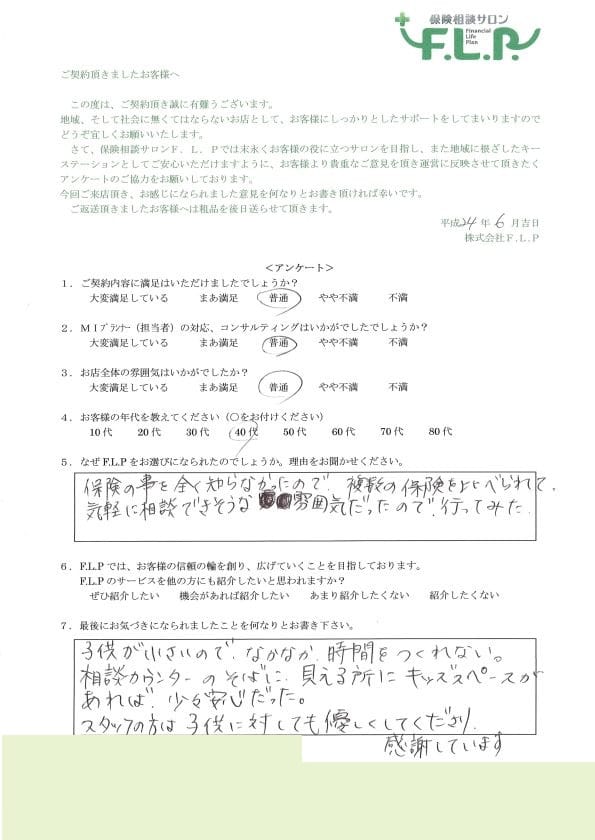 保険相談サロン
F.L.P.
Financial
Life
Plan
ご契約頂きましたお客様へ
この度は、ご契約頂き誠に有難うございます。
地域、そして社会に無くてはならないお店として、お客様にしっかりとしたサポートをしてまいりますので
どうぞ宜しくお願いいたします。
さて、保険相談サロンF．L．Pでは末永くお客様の役に立つサロンを目指し、また地域に根ざしたキー
ステーションとしてご安心いただけますように、お客様より貴重なご意見を頂き運営に反映させて頂きたく
アンケートのご協力をお願いしております。
今回ご来店頂き、お感じになられました意見を何なりとお書き頂ければ幸いです。
ご返送頂きましたお客様へは粗品を後日送らせて頂きます。
平成24年6月吉日
株式会社F.L.P
＜アンケート＞
1．ご契約内容に満足はいただけましたでしょうか？
大変満足している　まあ満足　普通　やや不満　不満
2．MIプランナー（担当者）の対応、コンサルティングはいかがでしたでしょうか？
大変満足している　まあ満足　普通　やや不満　不満
3．お店全体の雰囲気はいかがでしたか？
大変満足している　まあ満足　普通　やや不満　不満
4．お客様の年代を教えてください（○をお付けください）
10代　20代　30代　40代　50代　60代　70代　80代
5．なぜF.L.Pをお選びになられたのでしょうか。理由をお聞かせください。
保険の事を全く知らなかったので、複数の保険を比べられて、
気軽に相談できそうな雰囲気だったので行ってみた
6．F.L.Pでは、お客様の信頼の輪を創り、広げていくことを目指しております。
F.L.Pのサービスを他の方にも紹介したいと思われますか？
ぜひ紹介したい　機会があれば紹介したい　あまり紹介したくない　紹介したくない
7．最後にお気づきになられましたことを何なりとお書き下さい。
子供が小さいので、なかなか時間をつくれない。
相談カウンターのそばに、見える所にキッズスペースが
あれば、少々安心だった。
スタッフの方は子供に対しても優しくしてくださり、
感謝しています